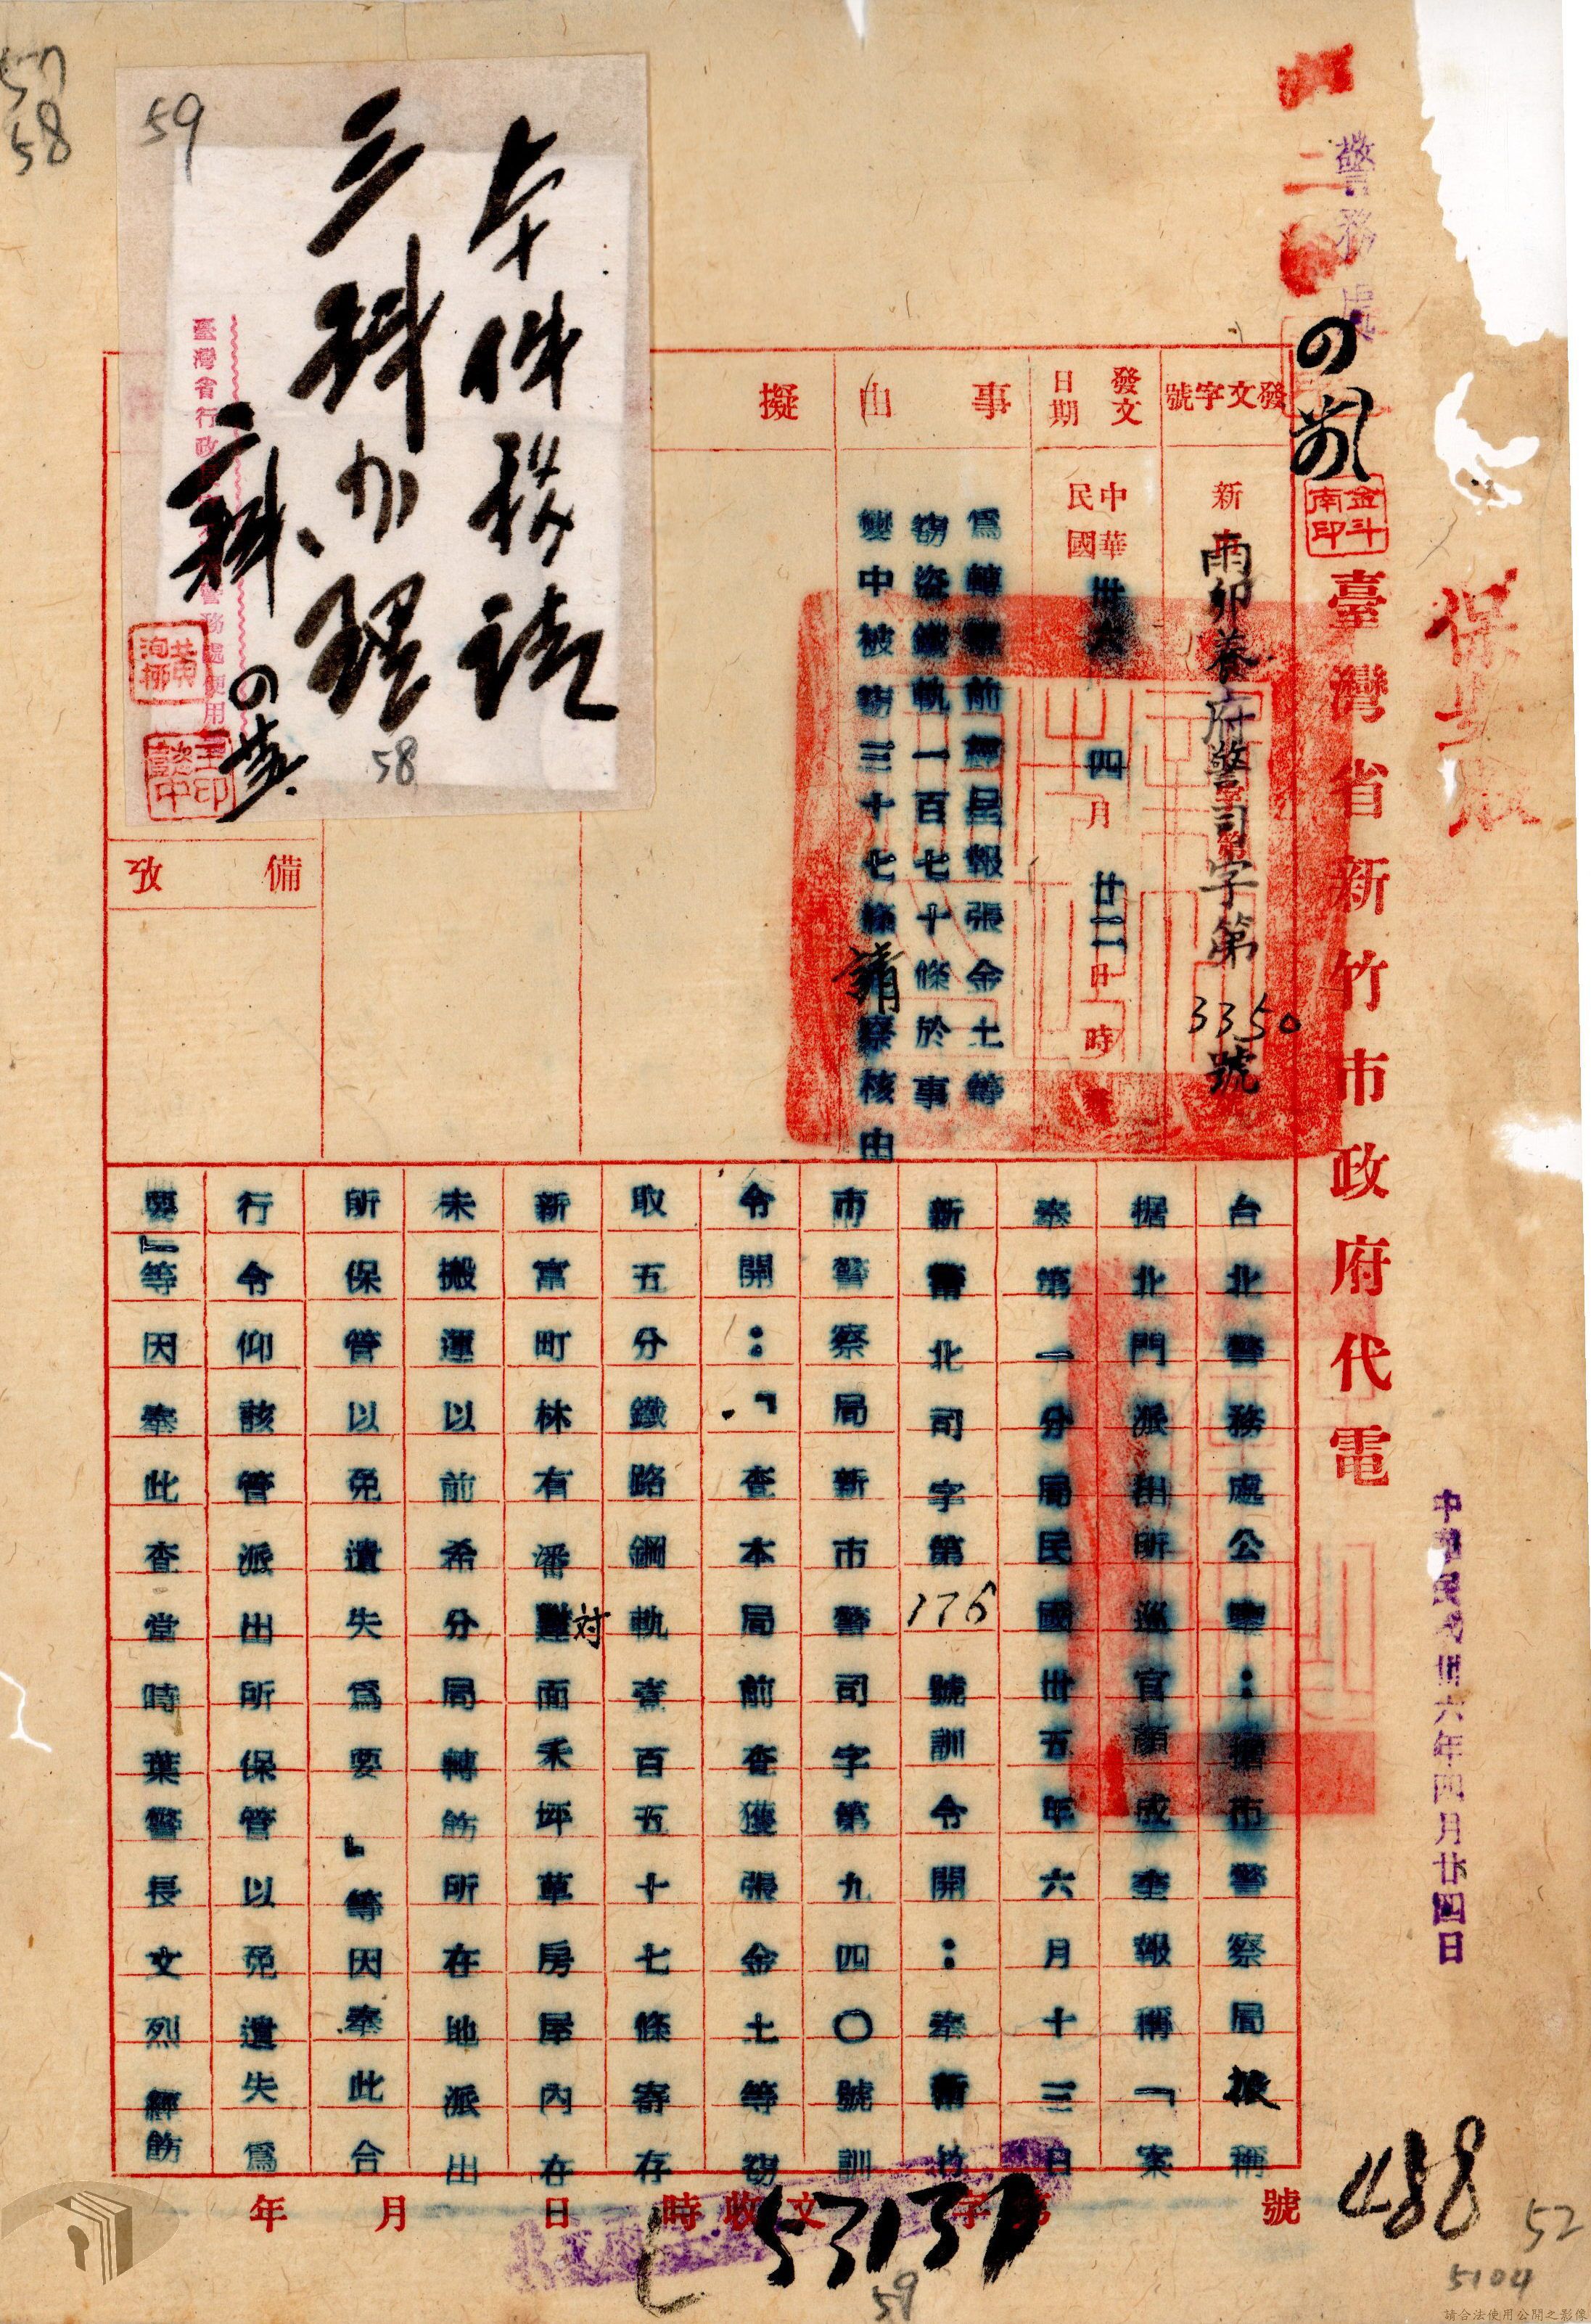 警務處
臺灣省新竹市政府代電
金斗南印
中華民國卅六年四月廿四日
發文字號
新
雨卯養府警司字第3350號
發文日期
中華民國卅六 四月廿二日 時
事由
為轉報前經呈報張金土等
竊盜鐵軌一百七十條於事
變中被竊三十七條請察核由
擬
備攷
本件移請
三科办理
二科
台北警務處公鑒：據市警察局報稱
据北門派出所巡官顏成奎報稱「案
奉第一分局民國卅五年六月十三日
新警北司字第176號訓令開：奉新竹
市警察局新市警司字第九四〇號訓
令開：『查本局前查獲張金土等竊
取五分鐵路鋼軌壹百五十七條寄存
新富町林有潘對面禾坪草房屋內在
未搬運以前希分局轉飭所在地派出
所保管以免遺失為要』等因奉此合
行令仰該管派出所保管以免遺失為
要』等因奉此查當時葉警長文烈經飭
年 月 日 時收文 字第 號
53137
488
52
5104
57
58
59
58
59
請合法使用公開之影像